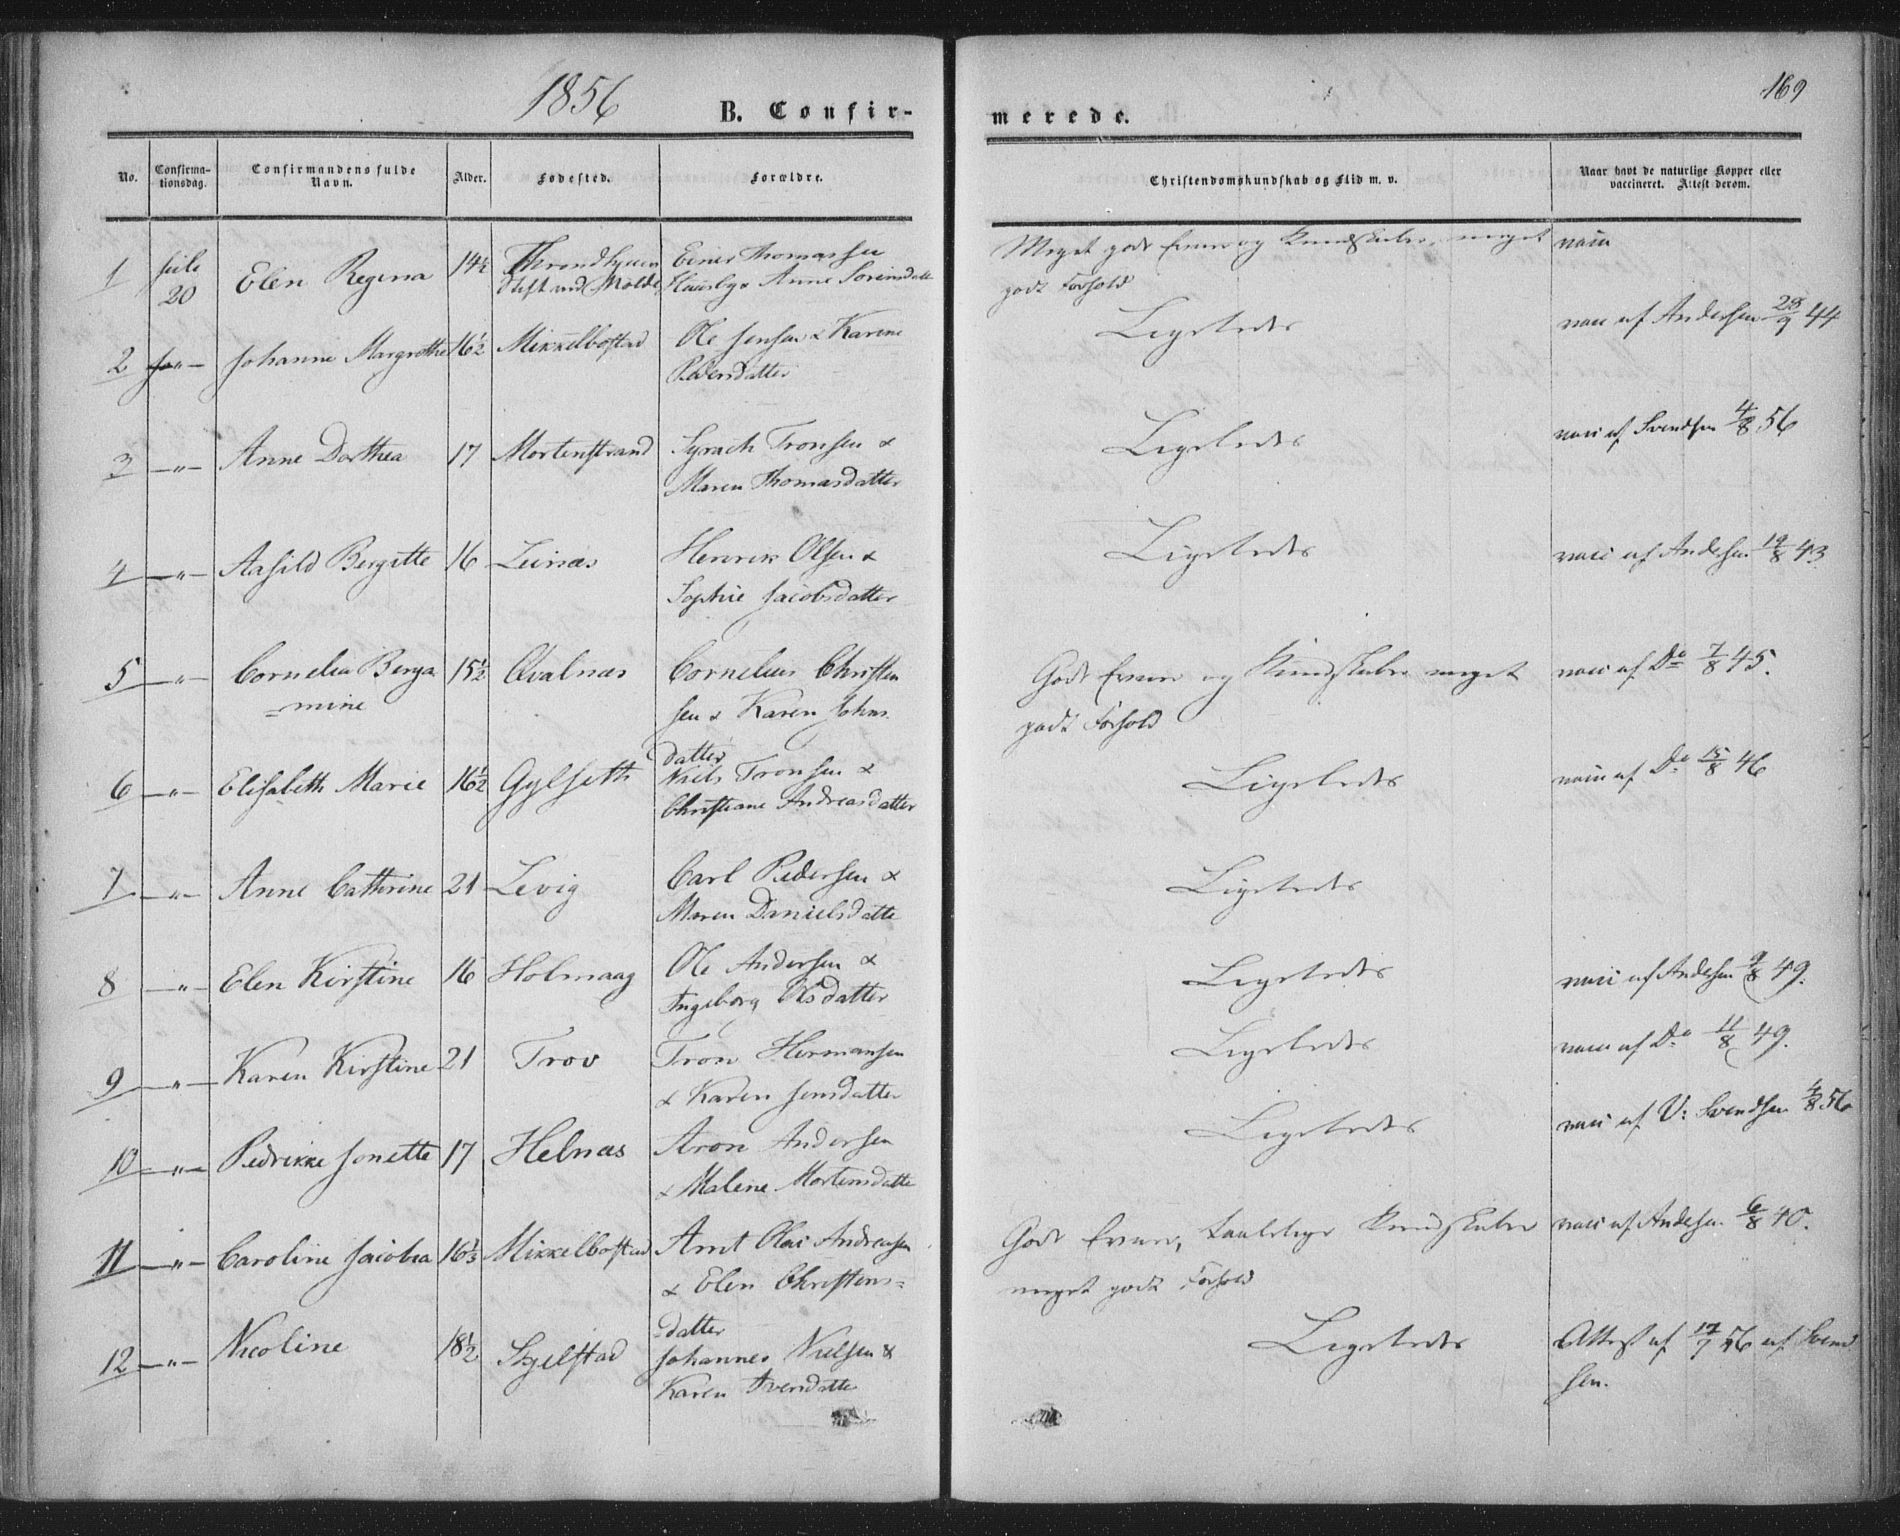 1856
169
B. Confir-
merede.
No.
Confirma-
tionsdag.
Confirmandens fulde
Navn.
Alder.
Fødested.
Forældre.
Christendomskundskab og Flid m. v.
Naar havt de naturlige Kopper eller
vaccineret. Attest derom.
1 Juli 20 Elen Regina 14½ Throndhjems Stift ved Molde Einer Thomassen
Anne Sørensdatt
Meget gode Evner og Kundskaber, meget
godt Forhold
vacc
2 —"— Johanne Margrethe 16½ Mikkelbostad Ole Jensen & Karene
Pedersdatter
Ligeledes
vacc af Andersen 28/9 44
3 —"— Anne Dorthea 17 Mortenstrand Syrach Tronsen &
Maren Thomasdatter
Ligeledes
vacc af Svendsen 4/8 56
4 —"— Aasild Bergitte 16 Leinæs Henrik Olsen &
Sophie Jacobsdatter
Ligeledes
vacc af Andersen 19/8 43
5 —"— Cornelia Berga 15½ Qvalnæs Cornelius Christen
=mine
sen & Karen Johns
datter
Gode Evner og Kundskaber meget
godt Forhold
vacc af Do 7/8 45.
6 —"— Elisabeth Marie 16½ Gylseth Niels Tronsen &
Christiane Andreasdatter
Ligeledes
vacc af Do 15/8 46
7 —"— Anne Cathrine 21 Levig Carl Pedersen &
Maren Danielsdatte
Ligeledes
8 —"— Elen Kirstine 16 Holmaag Ole Andersen &
Ingeborg Olsdatter
Ligeledes
vacc af Andersen 9/8 49.
9 —"— Karen Kirstine 21 Trov Tron Hermansen
& Karen Jensdatter
Ligeledes
vacc af Do 11/8 49.
10 —"— Pedrikke Jonette 17 Helnæs Aron Andersen
& Malene Mortensdatte
Ligeledes
vacc af V: Svendsen 4/8 56
11 —"— Caroline Jacobea 16½ Mikkelbostad Arnt Olai Andreasen
& Elen Christens=
datter
Gode Evner, taalelige Kundskaber
meget godt Forhold
vacc af Andersen 6/8 40.
12 —"— Nicoline 18½ Skjelstad Johannes Nielsen &
Karen Iversdatte
Ligeledes
Attest af 17/7 56 af Svend
sen.